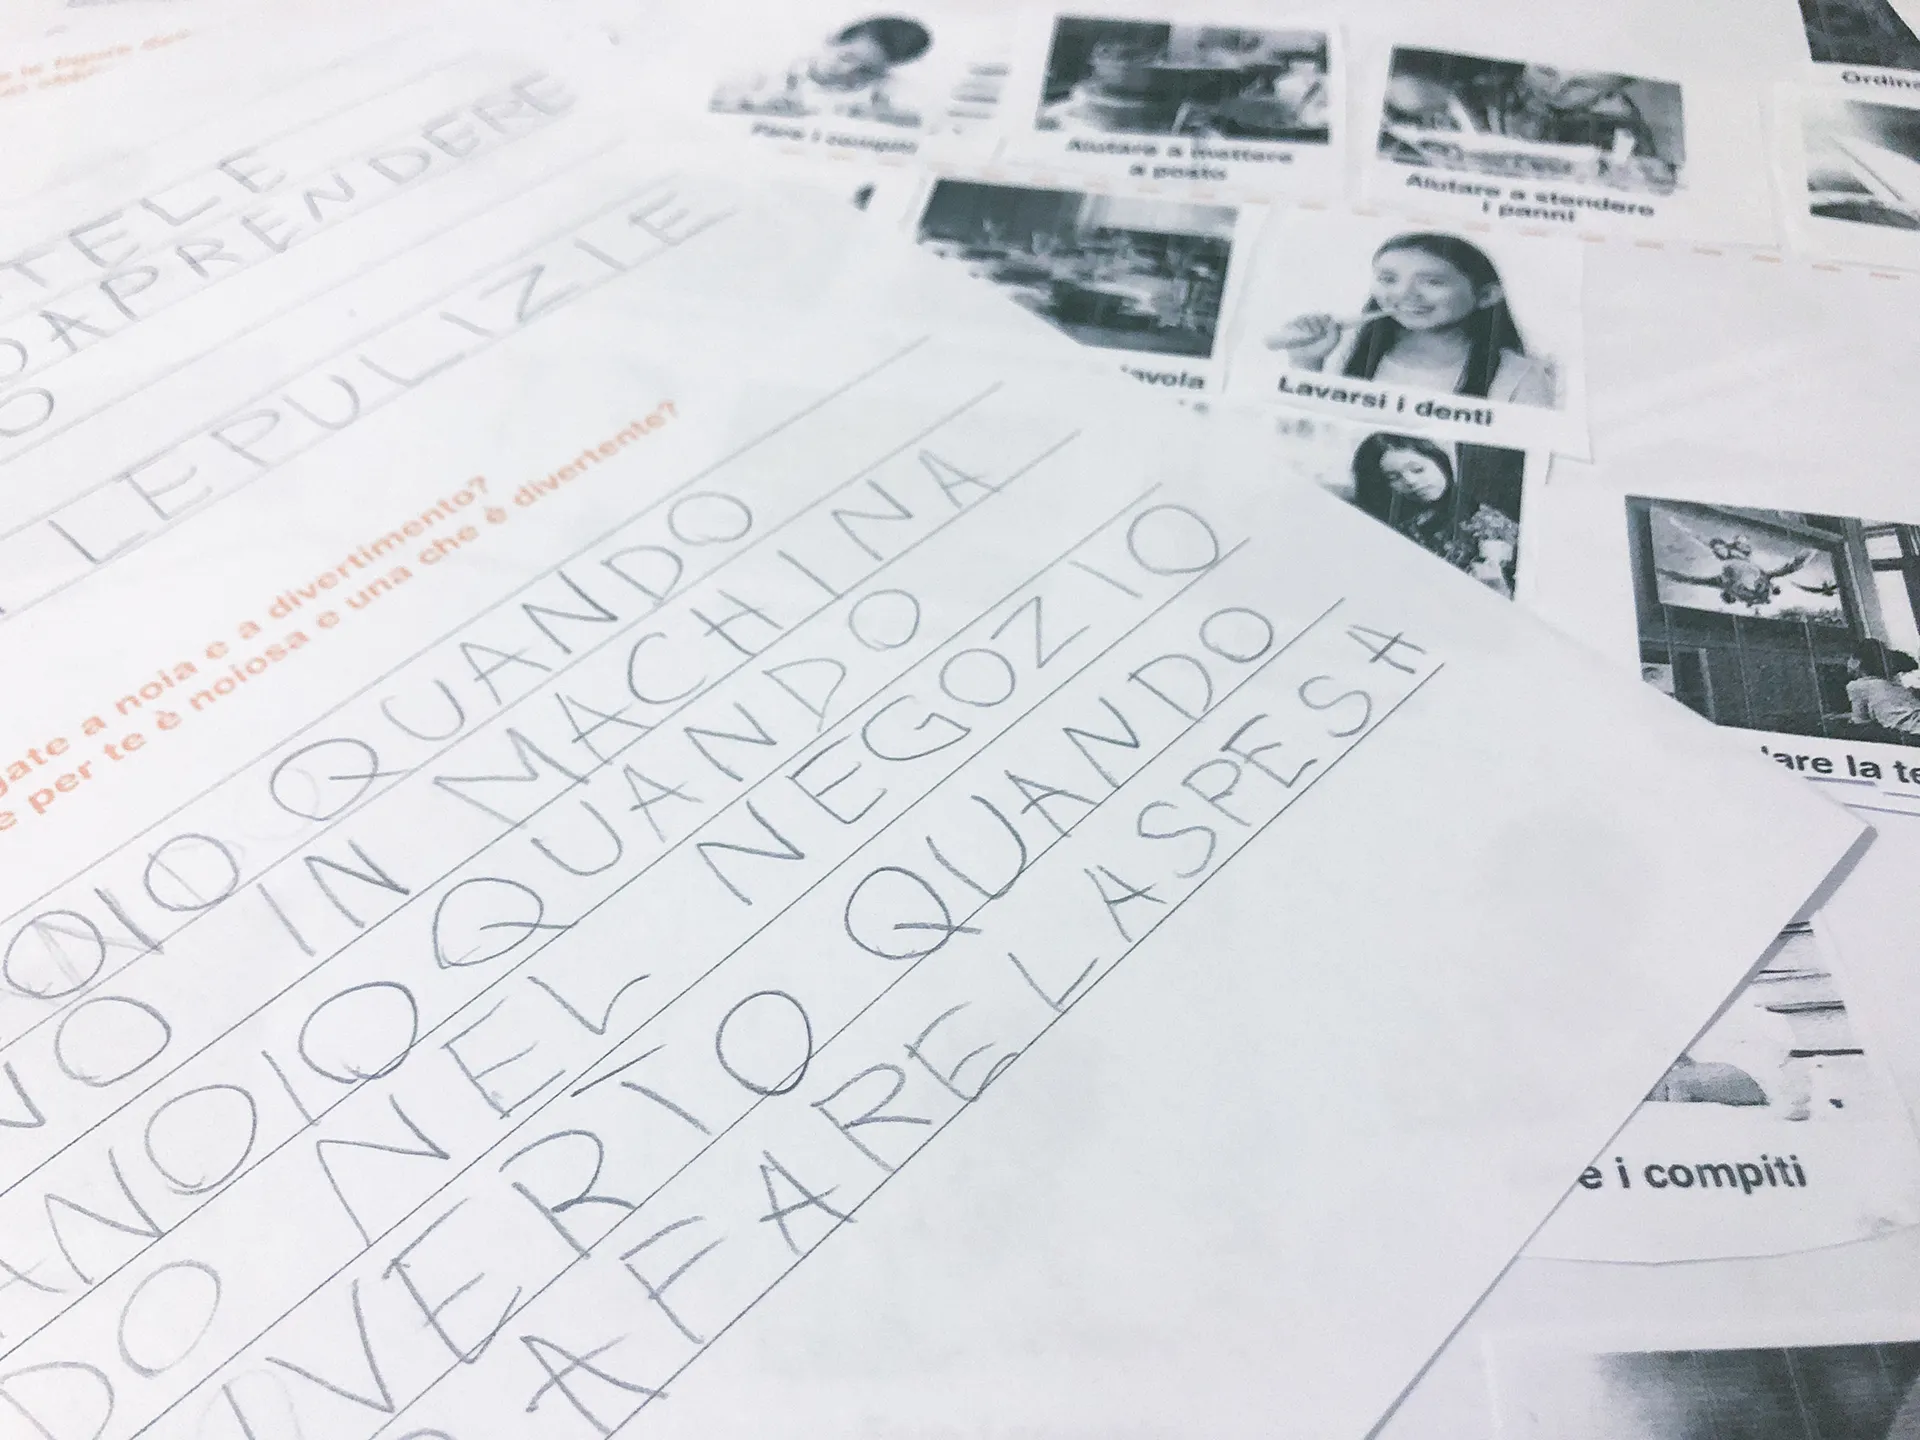 TELE
DAPRENDERE
O
LE PULIZIE
gate a noia e a divertimento?
e per te è noiosa e una che è divertente?
OIO QUANDO
VO IN MACHINA
ANOIO QUANDO
DO NEL NEGOZIO
IVERIO QUANDO
O A FARE LA SPESA
Fare i compiti
Aiutare a mettere
a posto
Aiutare a stendere
i panni
Ordina
avola
Lavarsi i denti
are la te
e i compiti